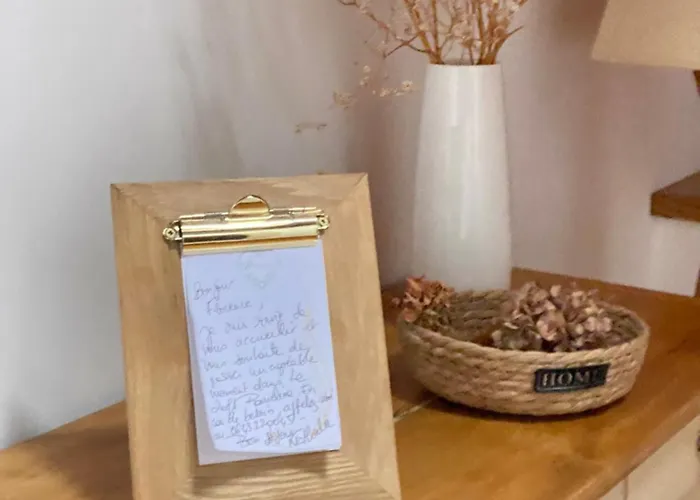 Bonjour
Florence,
je suis ravie de
vous accueillir et
vous souhaite de
passer un agréable
moment dans le
En
cas de besoin, appelez moi
au
Bon séjour
HOME